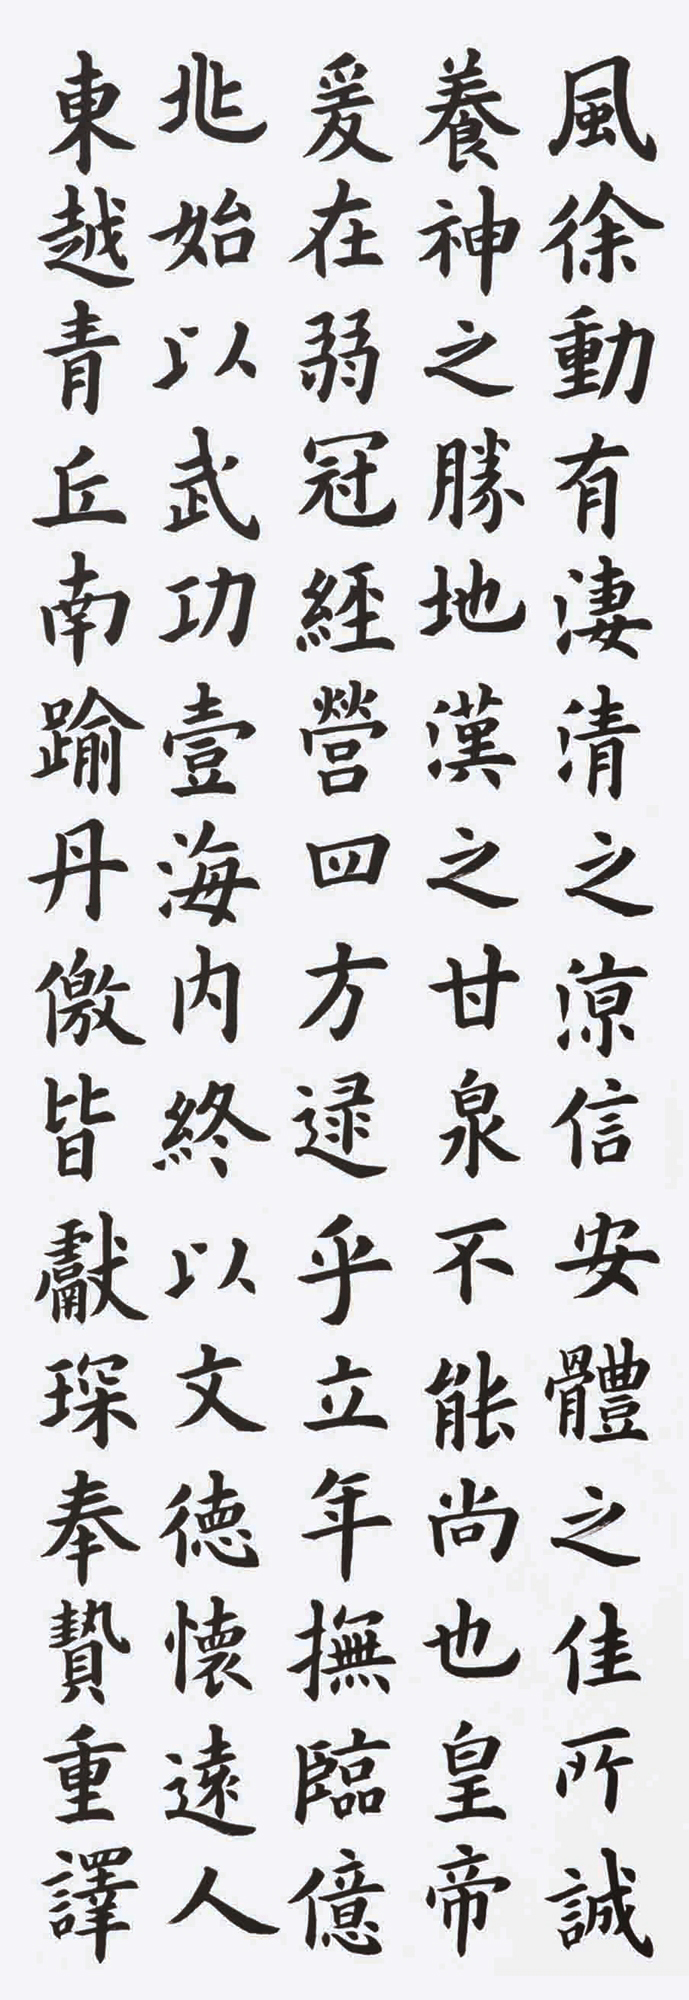 風徐動有淒清之涼信安體之佳所誠
養神之勝地漢之甘泉不能尚也皇帝
爰在弱冠經營四方逯乎立年撫臨億
兆始以武功壹海內終以文德懷遠人
東越青丘南踰丹儌皆獻琛奉贄重譯